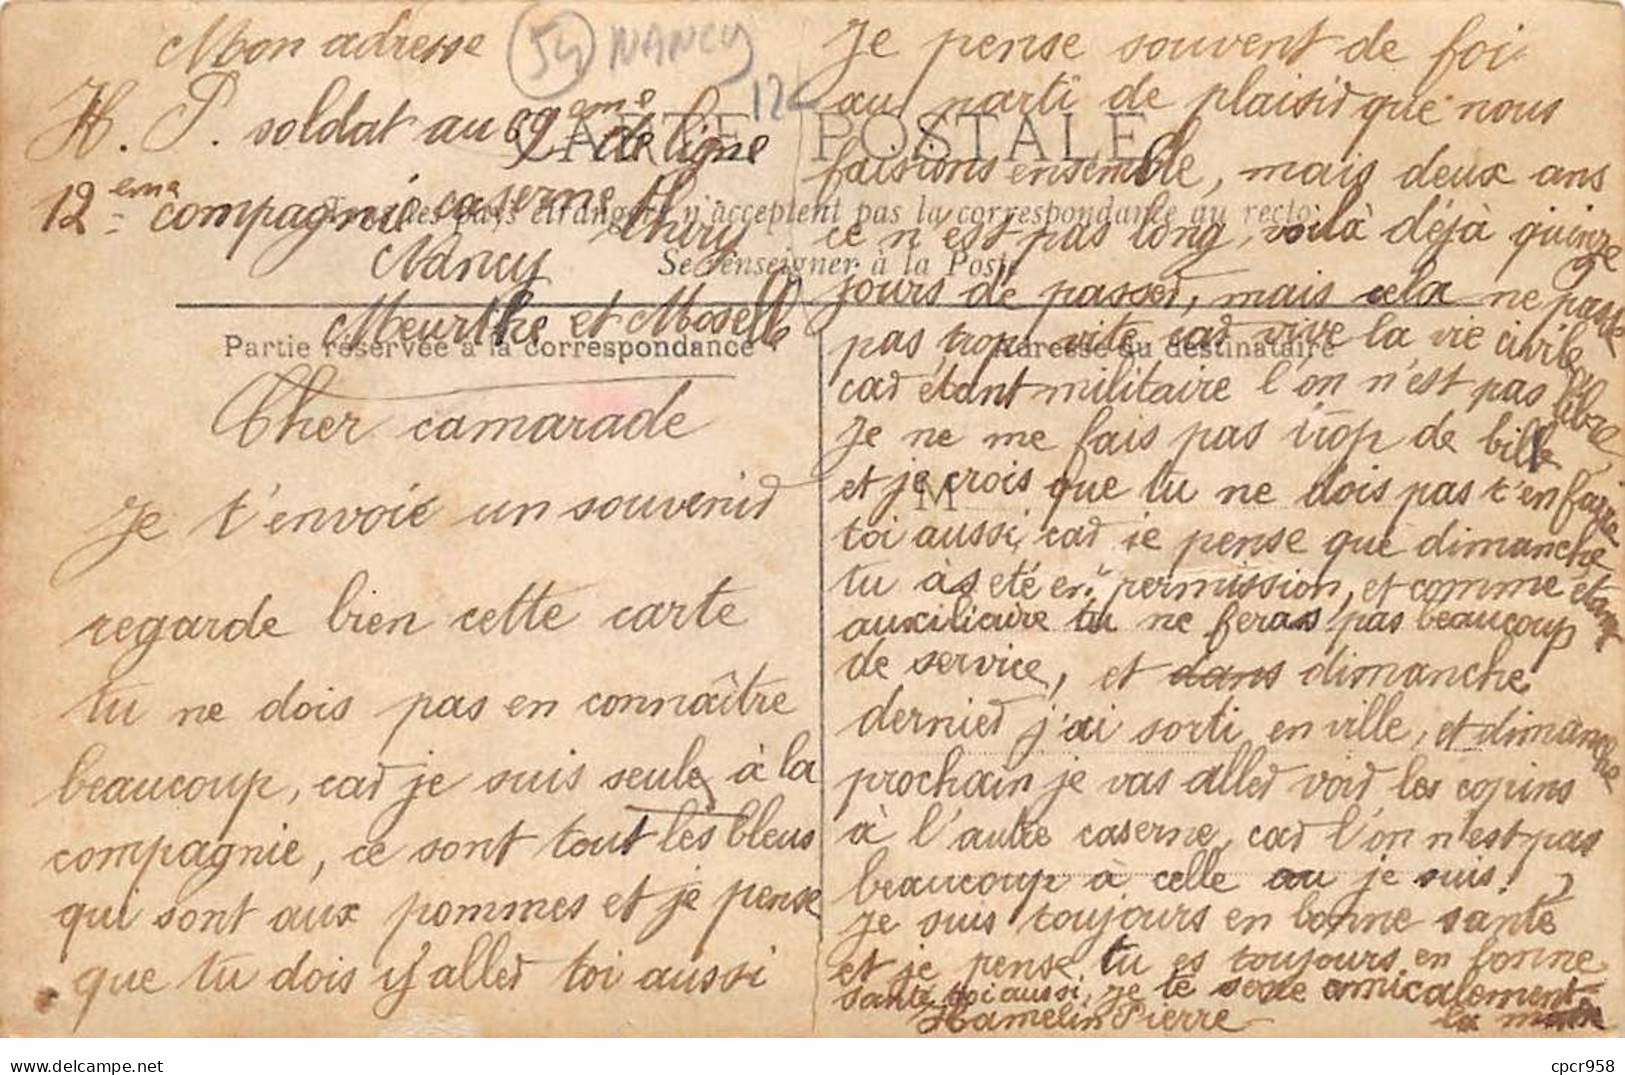 Mon adresse
H. P. soldat au 69eme de ligne
12eme compagnie caserne Thiry
Nancy
Meurthe et Moselle
54 NANCY
12
CARTE POSTALE
Tous les pays étrangers n'acceptent pas la correspondance au recto
Se renseigner à la Poste
Partie réservée à la correspondance
Adresse du destinataire
M
Cher camarade
Je t'envoie un souvenir
regarde bien cette carte
tu ne dois pas en connaître
beaucoup, car je suis seule à la
compagnie, ce sont tout les bleus
qui sont aux pommes et je pense
que tu dois y aller toi aussi
Je pense souvent de foi
au parti de plaisir que nous
faisions ensemble, mais deux ans
ce n'est pas long, voilà déjà quinze
jours de passer, mais cela ne passe
pas trop vite car vive la vie civile
car étant militaire l'on n'est pas libre
Je ne me fais pas trop de bille
et je crois que tu ne dois pas t'en faire
toi aussi, car je pense que dimanche
tu às eté en permission, et comme étant
auxiliaire tu ne feras pas beaucoup
de service, et dans dimanche
dernier j'ai sorti en ville, et dimanche
prochain je vas aller voir les copins
à l'autre caserne, car l'on n'est pas
beaucoup à celle au je suis.
Je suis toujours en bonne santé
et je pense tu es toujours en bonne
santé toi aussi, je te serre amicalement
Hamelin Pierre la main
cpcr958